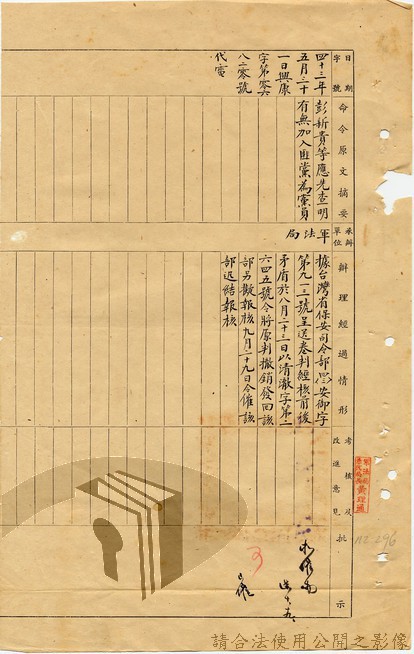 日期
字號
命令原文摘要
承辦
單位
辦理經過情形
考核及
改進意見
批示
四十三年
五月三十
一日興康
字第零六
八二零號
代電
彭新貴等應先查明
有無加入匪黨為黨員
軍法局
據台灣省保安司令部 安御字
第九一三號呈送卷判經核前後
矛盾於八月二十三日以清澈字第二
六四五號令將原判撤銷發回該
部另擬報核九月二十九日令催該
部迅結報核
請合法使用公開之影像